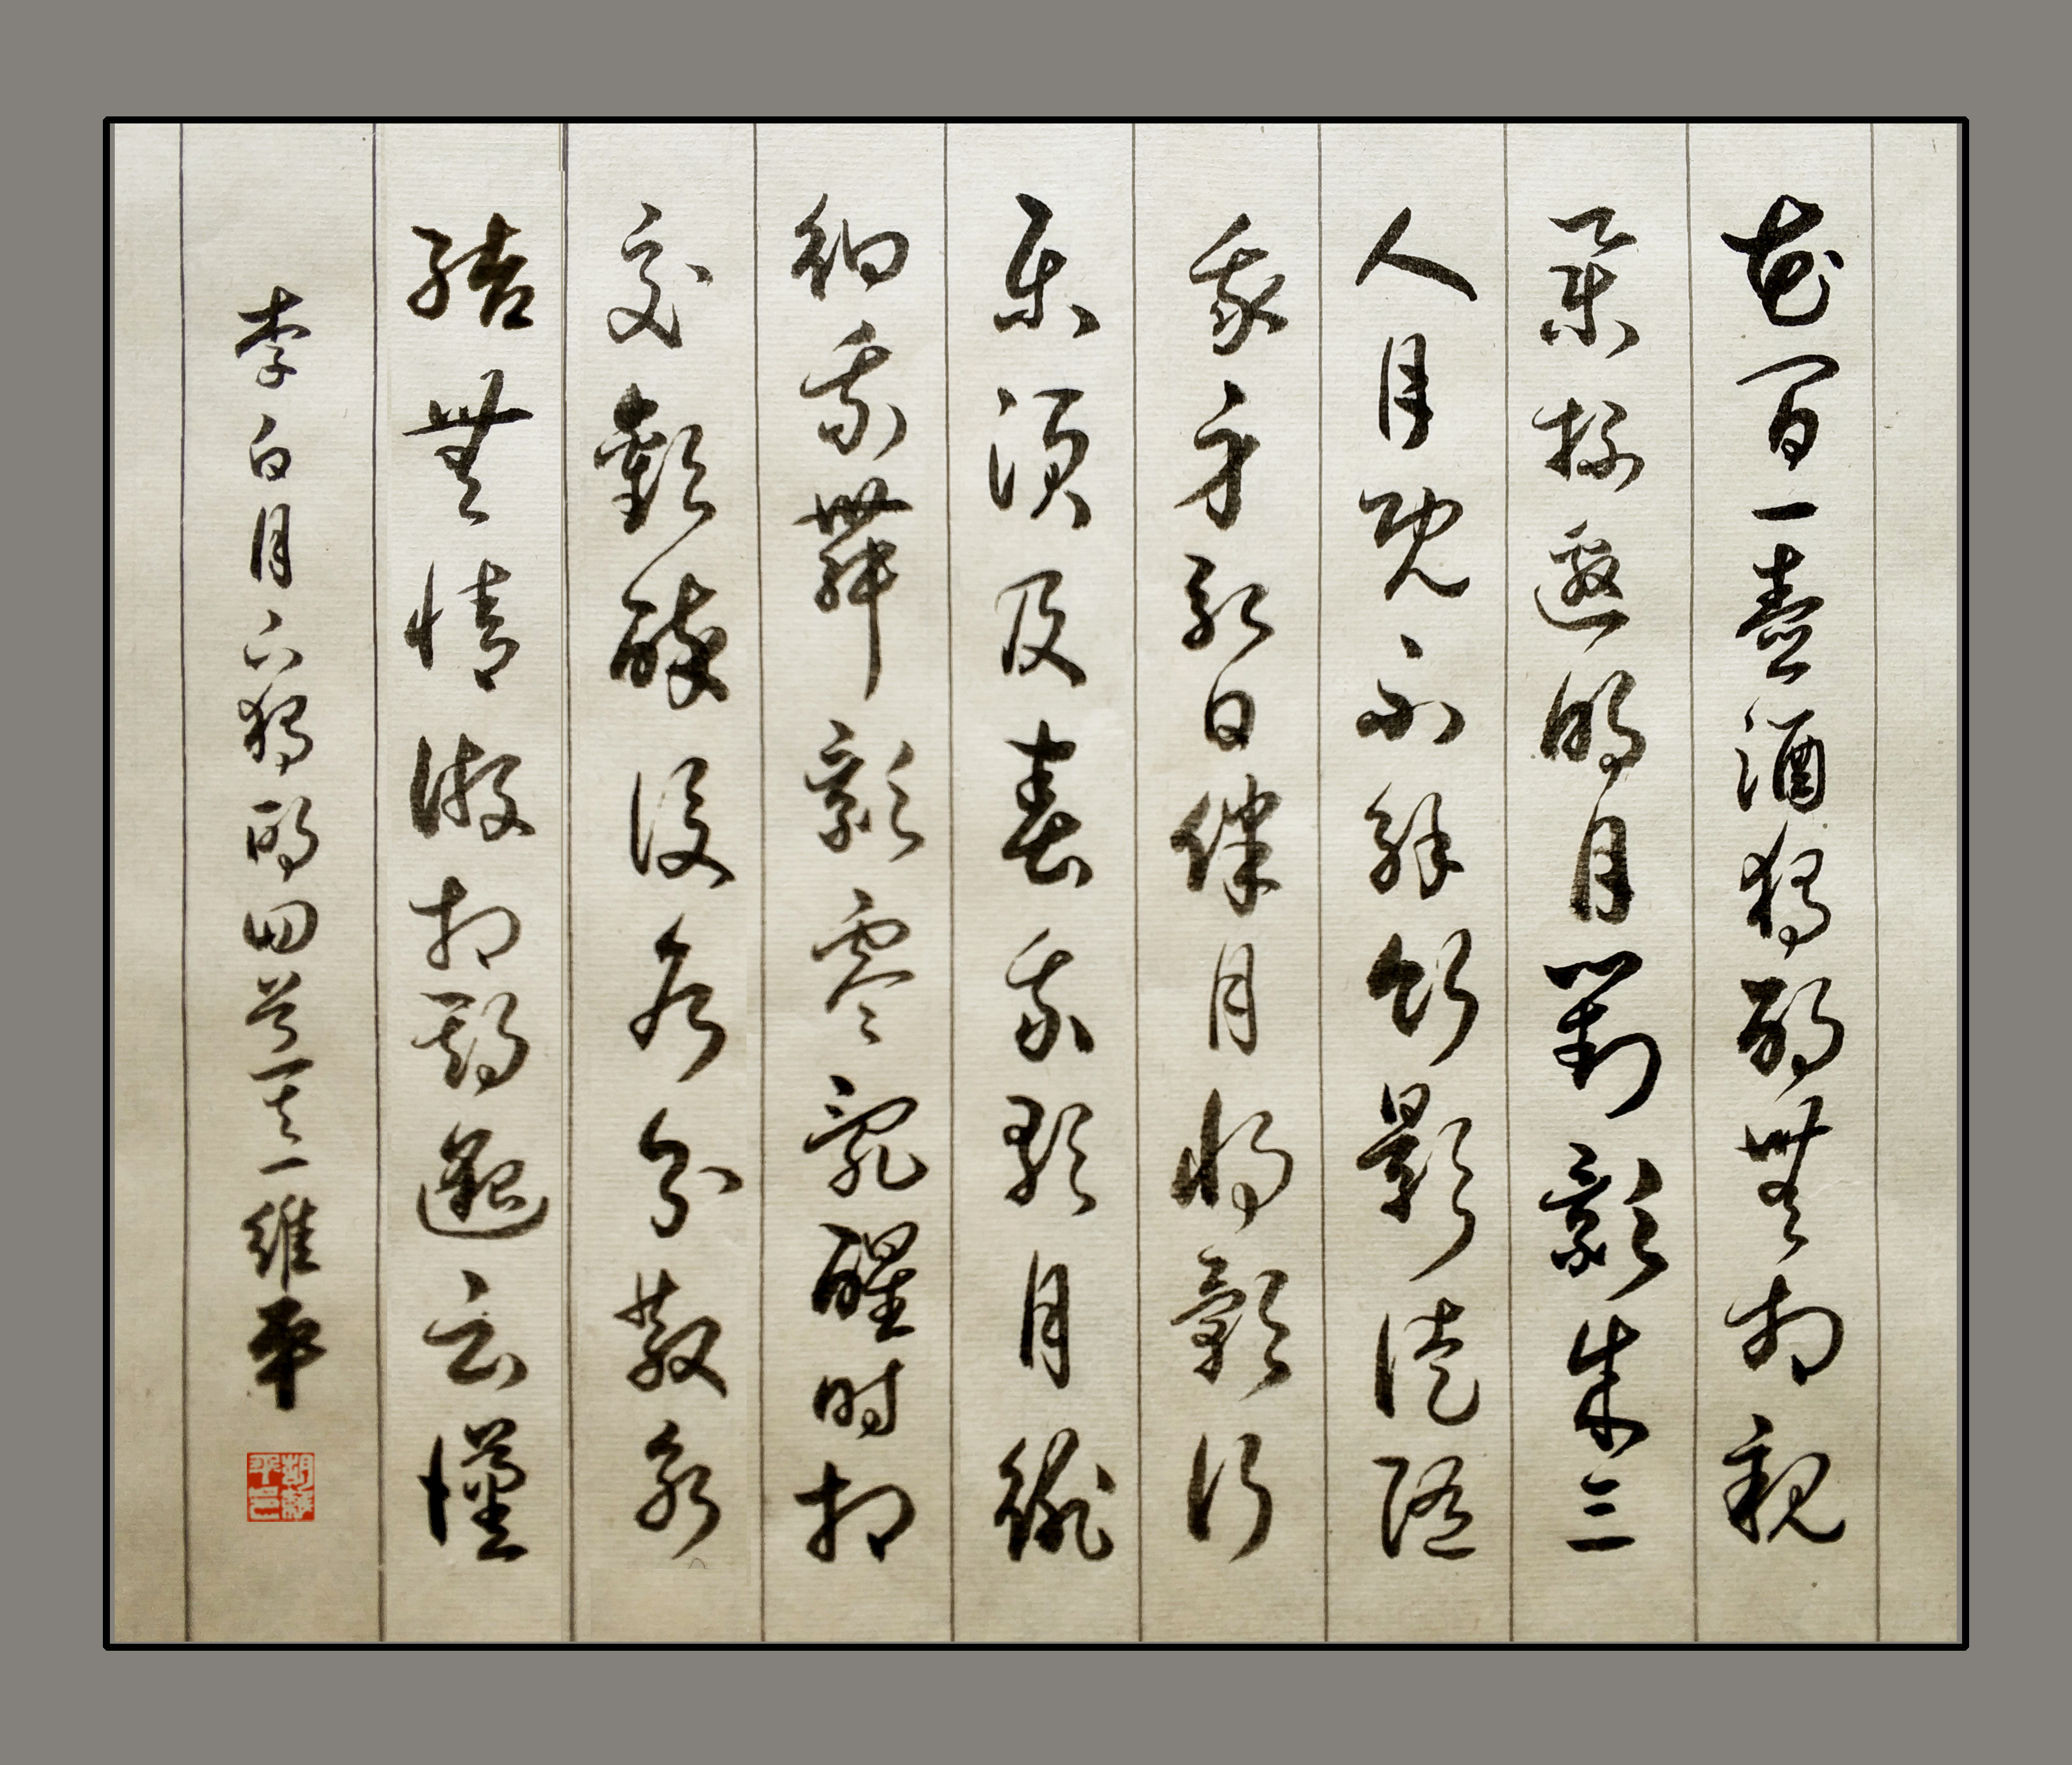 花間一壺酒獨酌無相親
舉杯邀明月對影成三
人月既不解飲影徒隨
我身暫伴月將影行
樂須及春我歌月徘
徊我舞影零亂醒時相
交歡醉後各分散永
結無情遊相期邈云漢
李白月下獨酌四首之一 維平
胡維平印